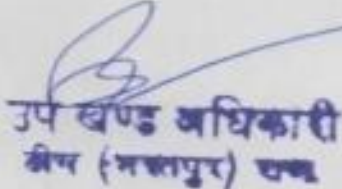 उप खण्ड अधिकारी
डीग (भरतपुर) राज०